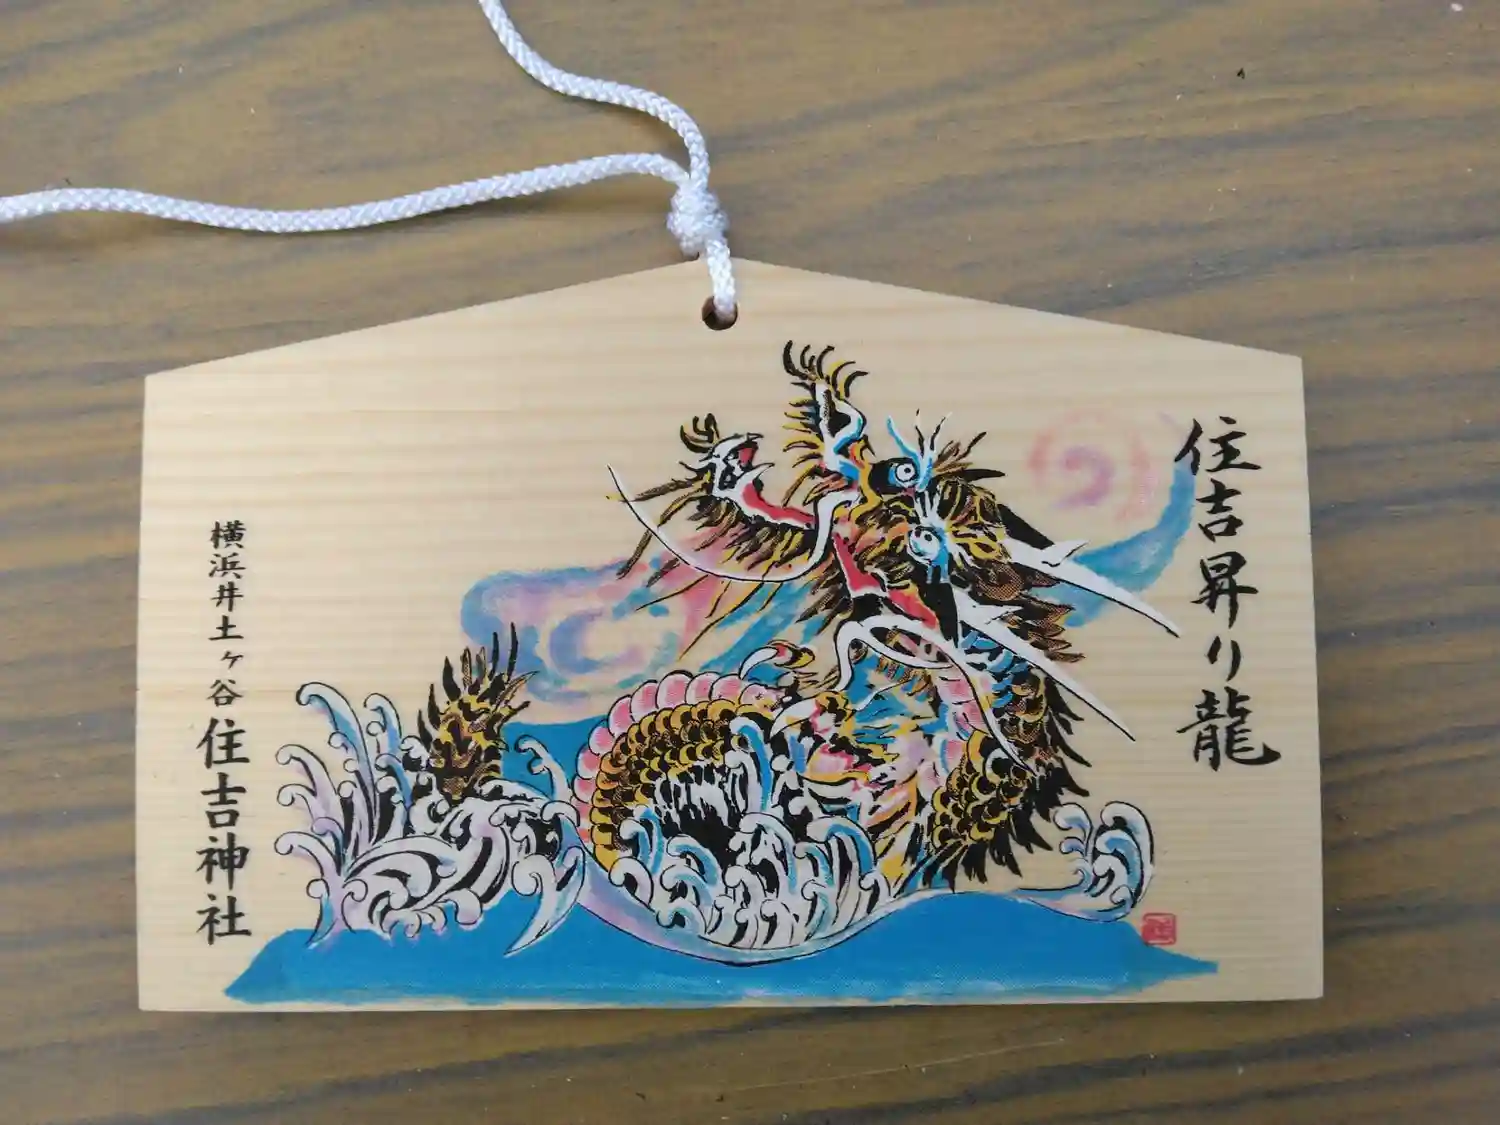 住吉昇り龍
横浜井土ヶ谷住吉神社